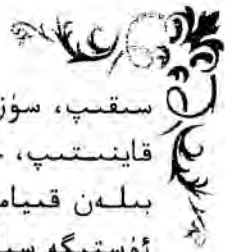 سىقىپ، سۈز
قاينىتىپ،
بىلەن قىيام
ئۈستىگە